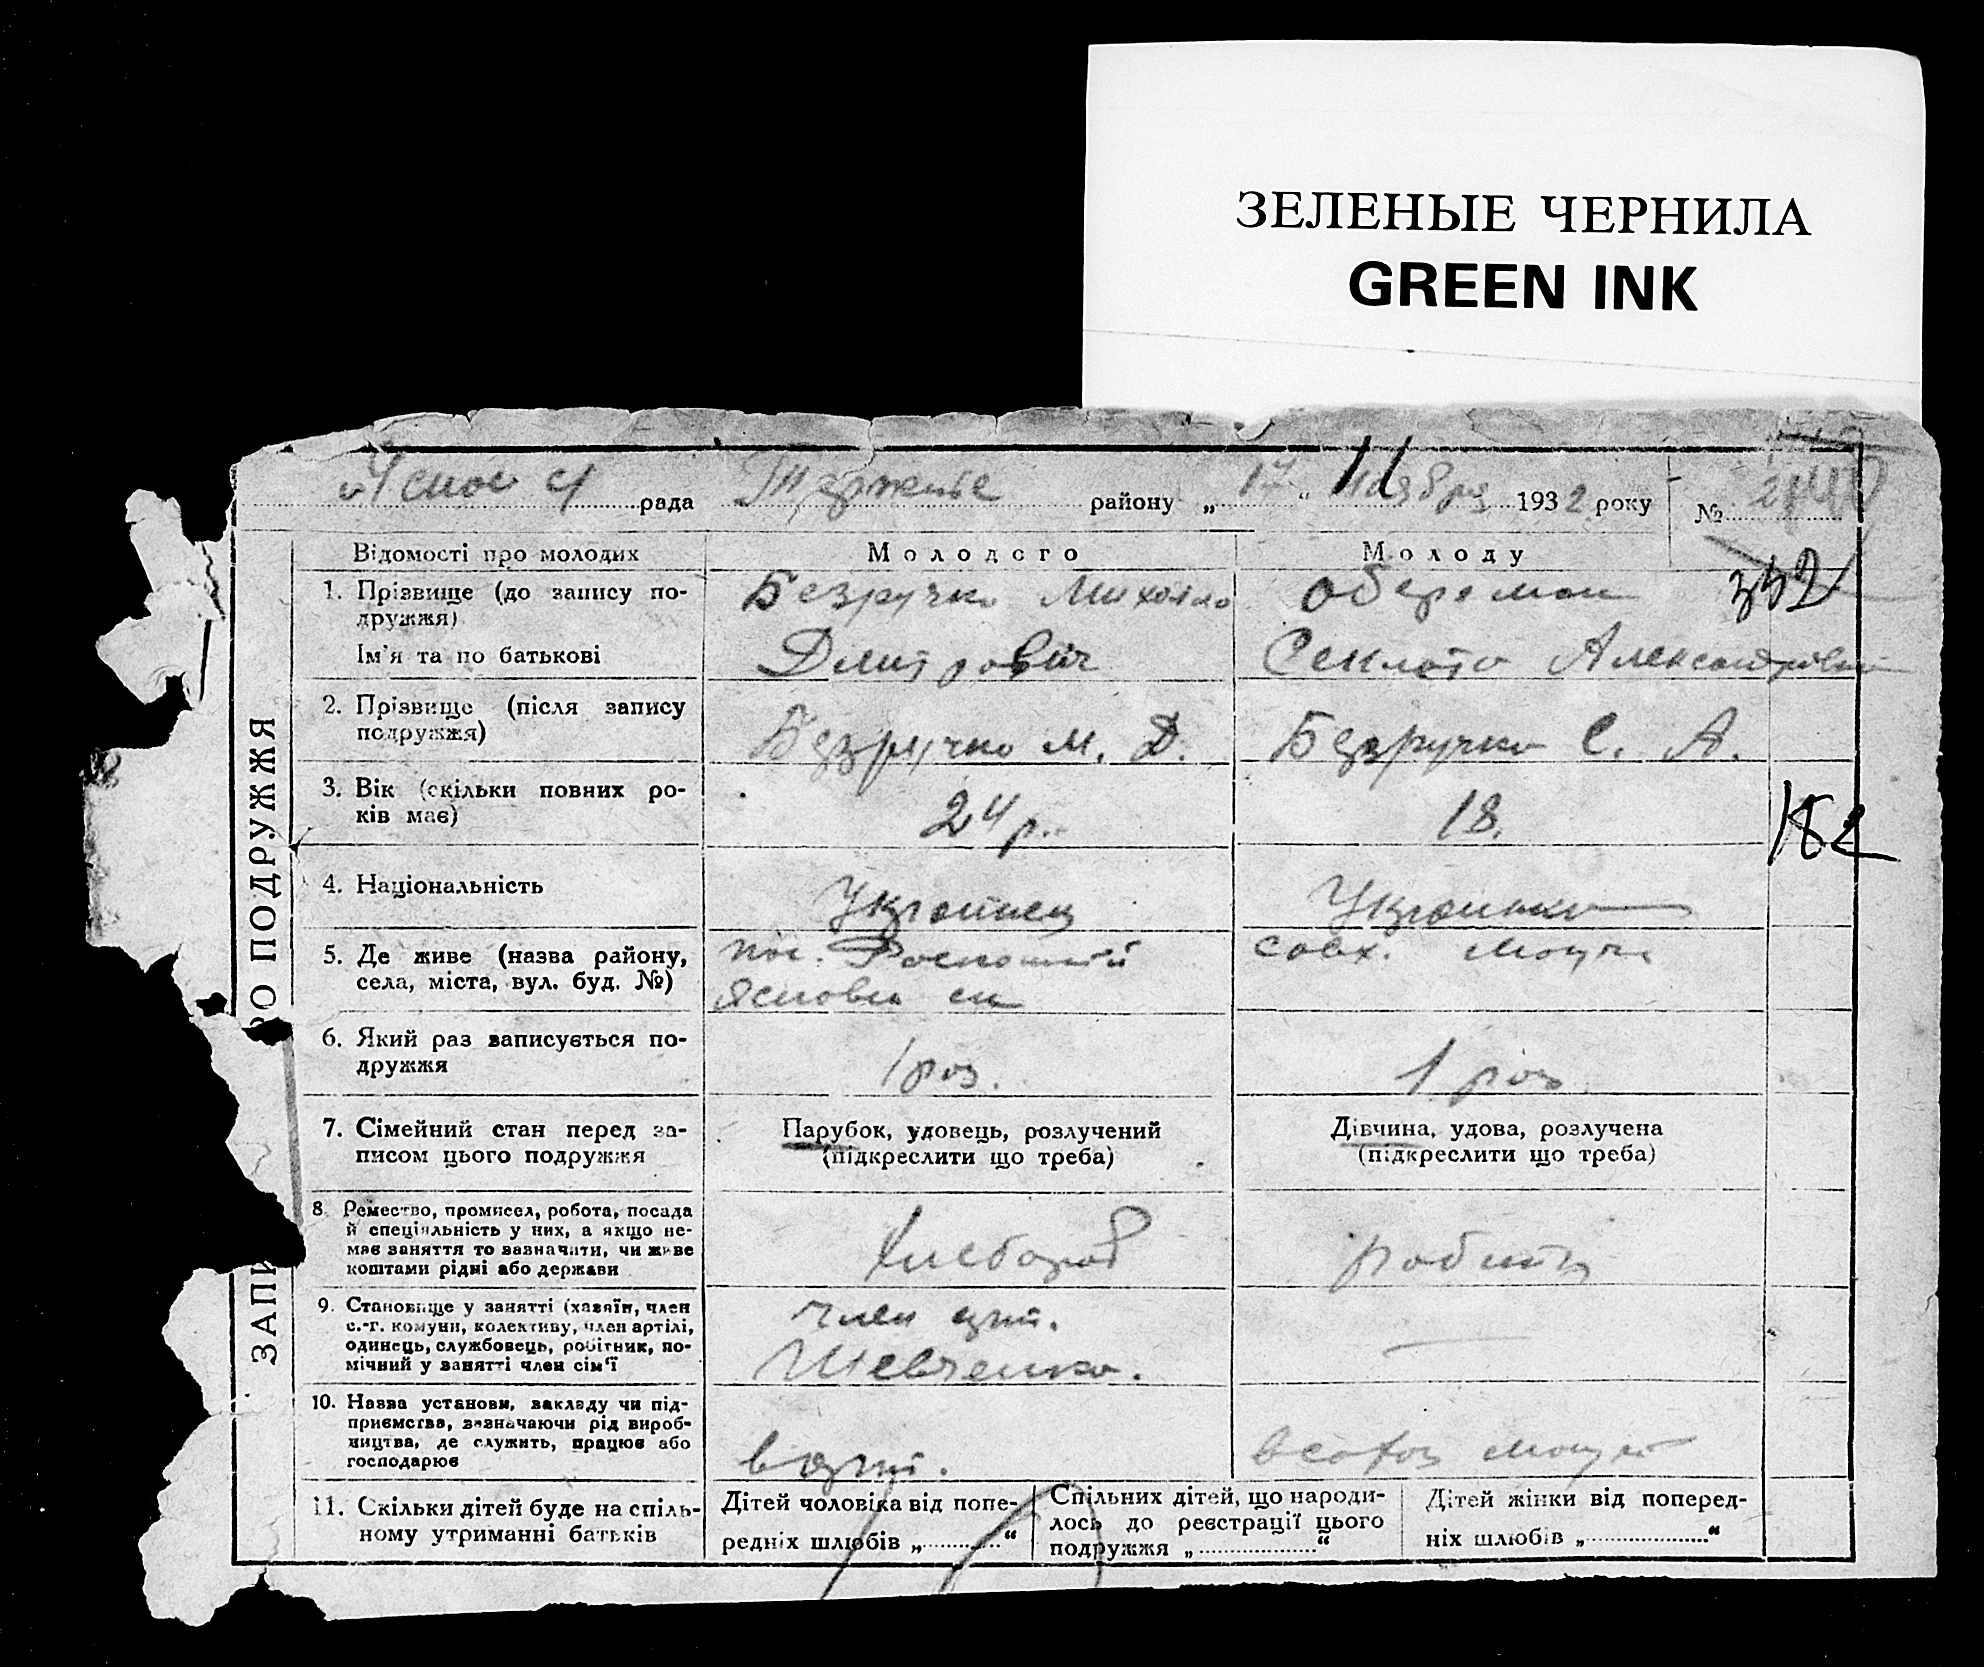 ЗЕЛЕНЫЕ ЧЕРНИЛА
GREEN INK
рада району „17“ ноября 1932 року №
352
ЗАПИ РО ПОДРУЖЖЯ
Відомості про молодих
Молодого
Молоду
1. Прізвище (до запису по-
дружжя)
Ім'я та по батькові
Безручко Михайло
Дмитрович
Александрівна
2. Прізвище (після запису
подружжя)
Безручко М. Д.
Безручко С. А.
3. Вік (скільки повних ро-
ків має)
24 р.
18.
182
4. Національність
Українец
Українка
5. Де живе (назва району,
села, міста, вул. буд. №)
пос.
совх.
6. Який раз записується по-
дружжя
1 раз.
1 раз
7. Сімейний стан перед за-
писом цього подружжя
Парубок, удовець, розлучений
(підкреслити що треба)
Дівчина, удова, розлучена
(підкреслити що треба)
8. Ремество, промисел, робота, посада
й спеціяльність у них, а якщо не-
має заняття то зазначити, чи живе
коштами рідні або держави
Хлебороб
9. Становище у занятті (хазяїн, член
с.-г. комуни, колективу, член артілі,
одинець, службовець, робітник, по-
мічний у занятті член сім'ї
член
Шевченко.
10. Назва установи, закладу чи під-
приємства, зазначаючи рід вироб-
ництва, де служить, працює або
господарює
11. Скільки дітей буде на спіль-
ному утриманні батьків
Дітей чоловіка від попе-
редніх шлюбів „ “
Спільних дітей, що народи-
лось до реєстрації цього
подружжя „ “
Дітей жінки від поперед-
ніх шлюбів „ “